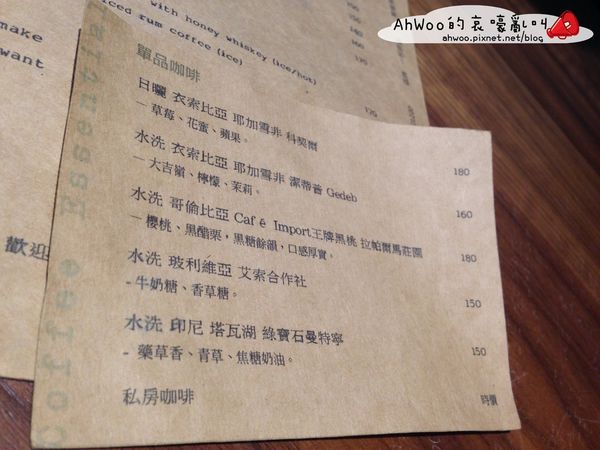 AhWoo的哀嚎亂叫
ahwoo.pixnet.net/blog
with honey whiskey (ice/hot)
iced rum coffee (ice)
make
want
150
160
150
170
歡迎
單品咖啡
日曬 衣索比亞 耶加雪非 科契爾 180
— 草莓、花蜜、蘋果。
水洗 衣索比亞 耶加雪非 潔蒂普 Gedeb 160
— 大吉嶺、檸檬、茉莉。
水洗 哥倫比亞 Café Import王牌黑桃 拉帕爾馬莊園 180
— 櫻桃、黑醋栗，黑糖餘韻，口感厚實。
水洗 玻利維亞 艾索合作社 150
- 牛奶糖、香草糖。
水洗 印尼 塔瓦湖 綠寶石曼特寧 150
- 藥草香、青草、焦糖奶油。
私房咖啡 時價